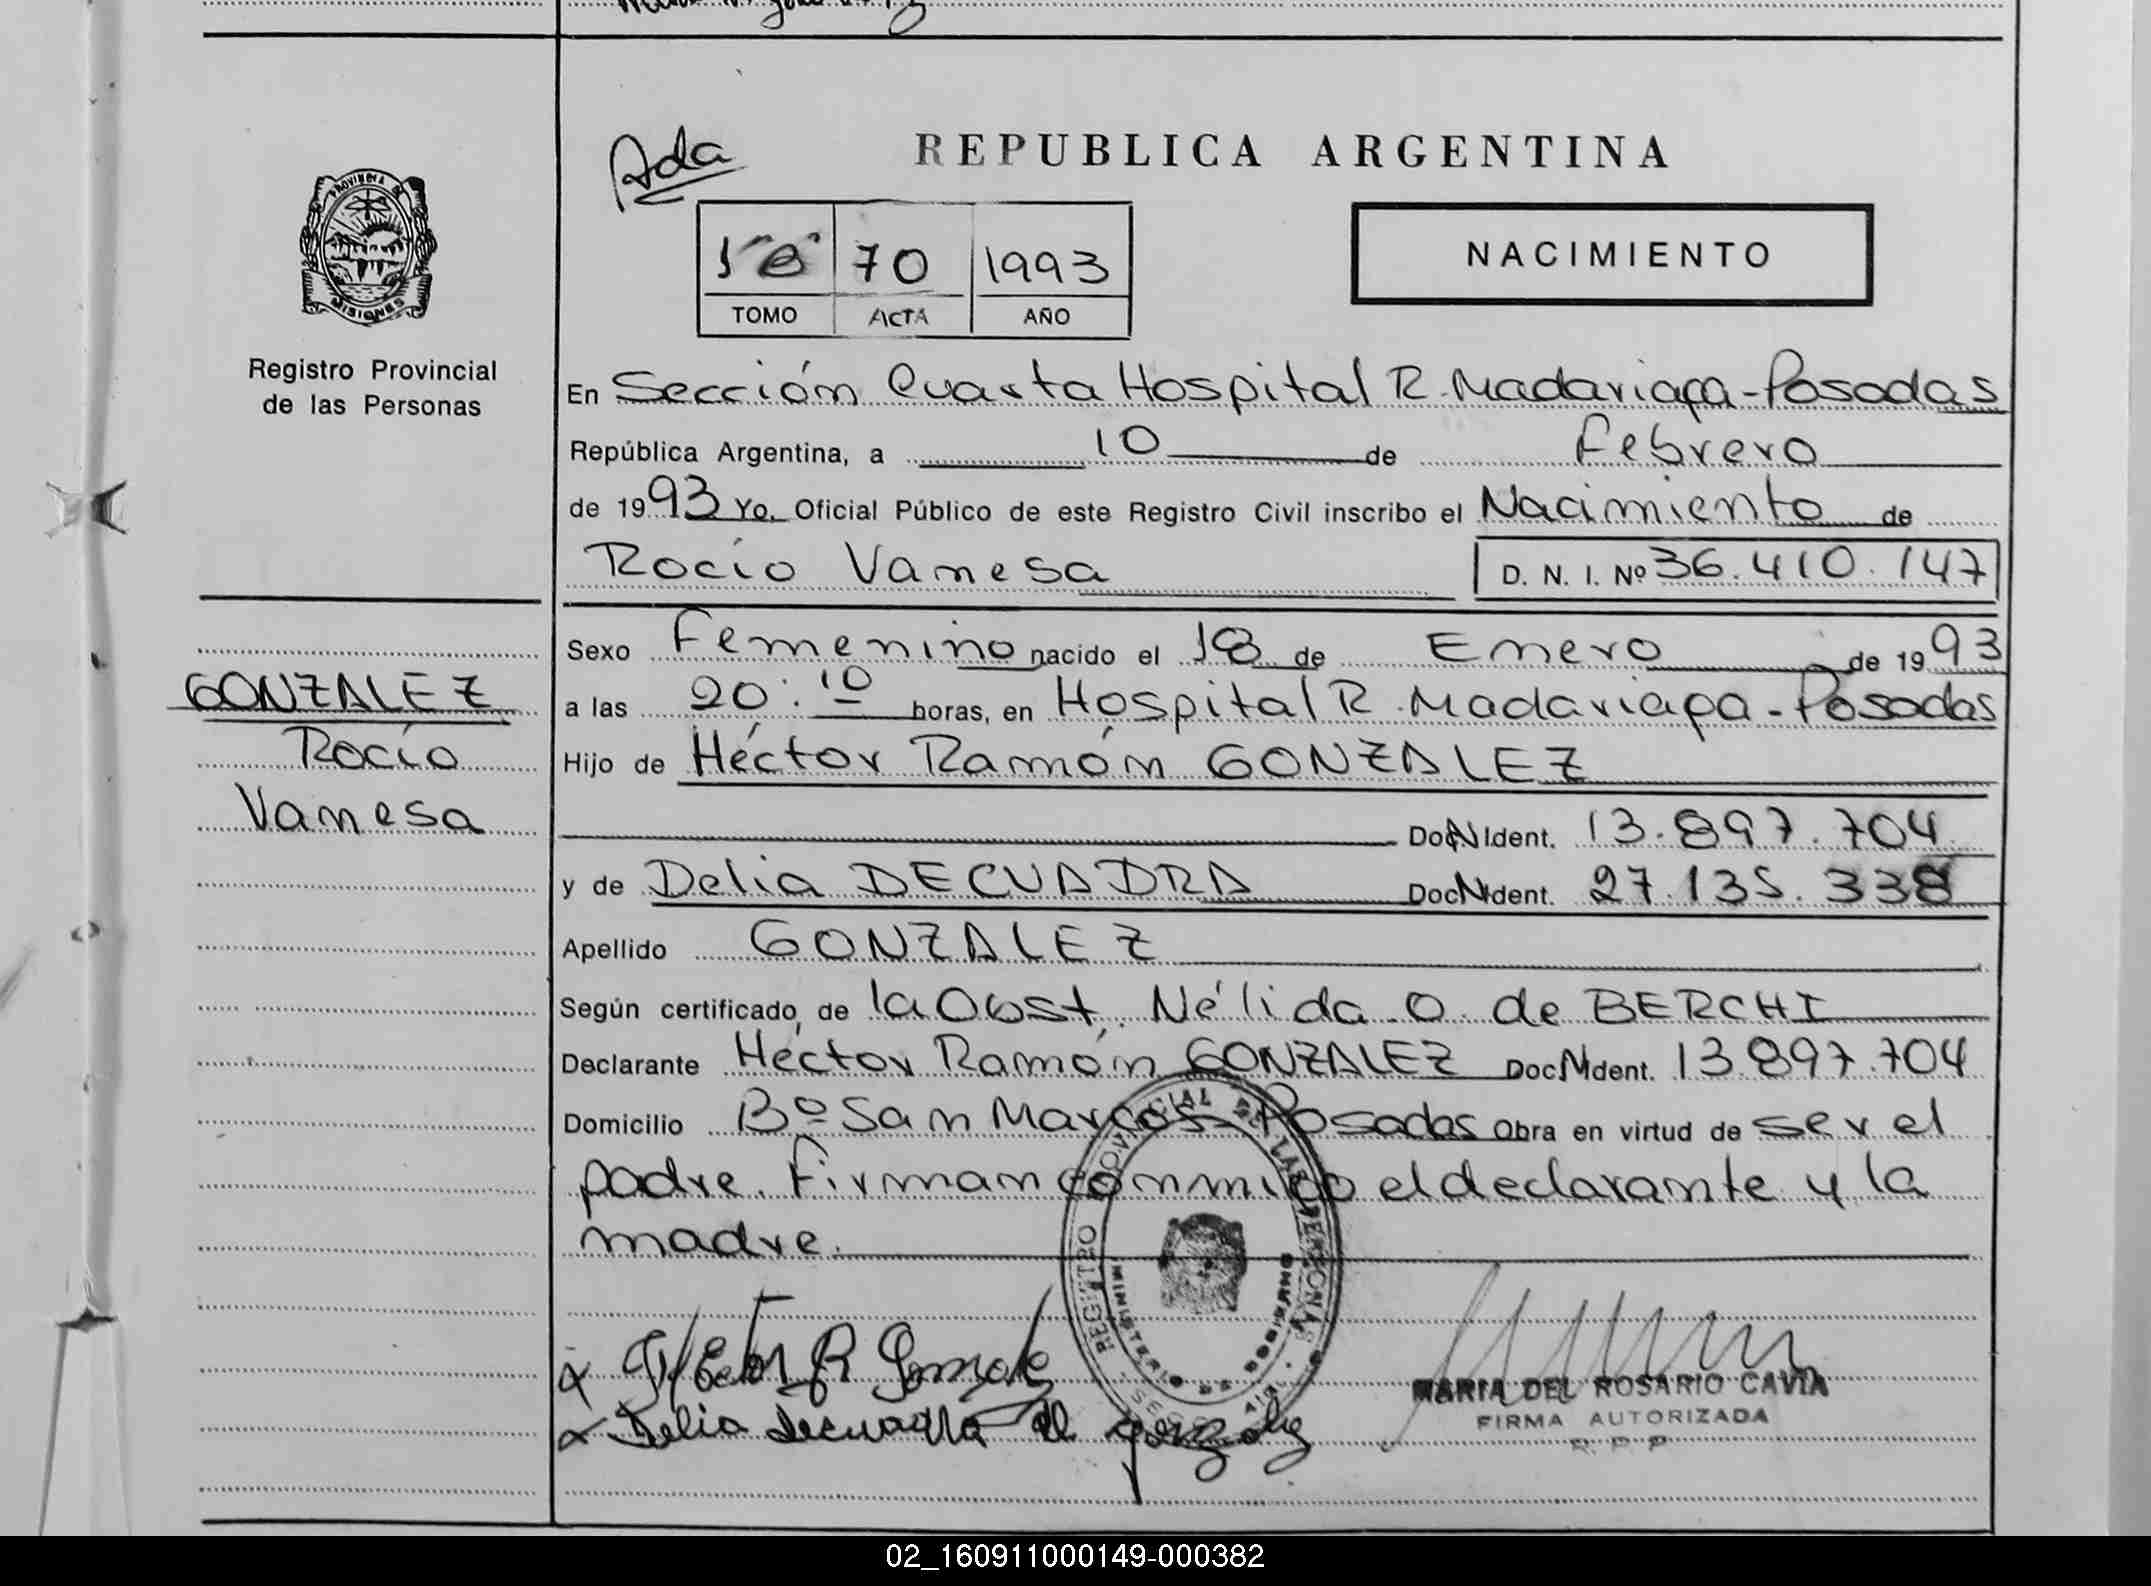 REPUBLICA ARGENTINA
Ada
1º "B" 70 1993
TOMO ACTA AÑO
NACIMIENTO
PROVINCIA DE
MISIONES
Registro Provincial
de las Personas
En Sección Cuarta Hospital R. Madariaga - Posadas
República Argentina, a 10 de Febrero
de 1993 Yo, Oficial Público de este Registro Civil inscribo el Nacimiento de
Rocío Vanesa D. N. I. Nº 36.410.147
Sexo Femenino nacido el 18 de Enero de 1993
a las 20:10 horas, en Hospital R. Madariaga - Posadas
Hijo de Héctor Ramón GONZALEZ
Doc N Ident. 13.897.704
y de Delia DECUADRA Doc N Ident. 27.135.338
Apellido GONZALEZ
Según certificado, de la Obst. Nélida O. de BERCHI
Declarante Héctor Ramón GONZALEZ Doc N Ident. 13.897.704
Domicilio Bº San Marcos - Posadas Obra en virtud de ser el
padre. Firman conmigo el declarante y la
madre.
GONZALEZ
Rocío
Vanesa
REGISTRO PROVINCIAL DE LAS PERSONAS
MINISTERIO DE GOBIERNO
x Hector R Gonzalez
x Delia Decuadra de gonzalez
MARIA DEL ROSARIO CAVIA
FIRMA AUTORIZADA
R. P. P
02_160911000149-000382